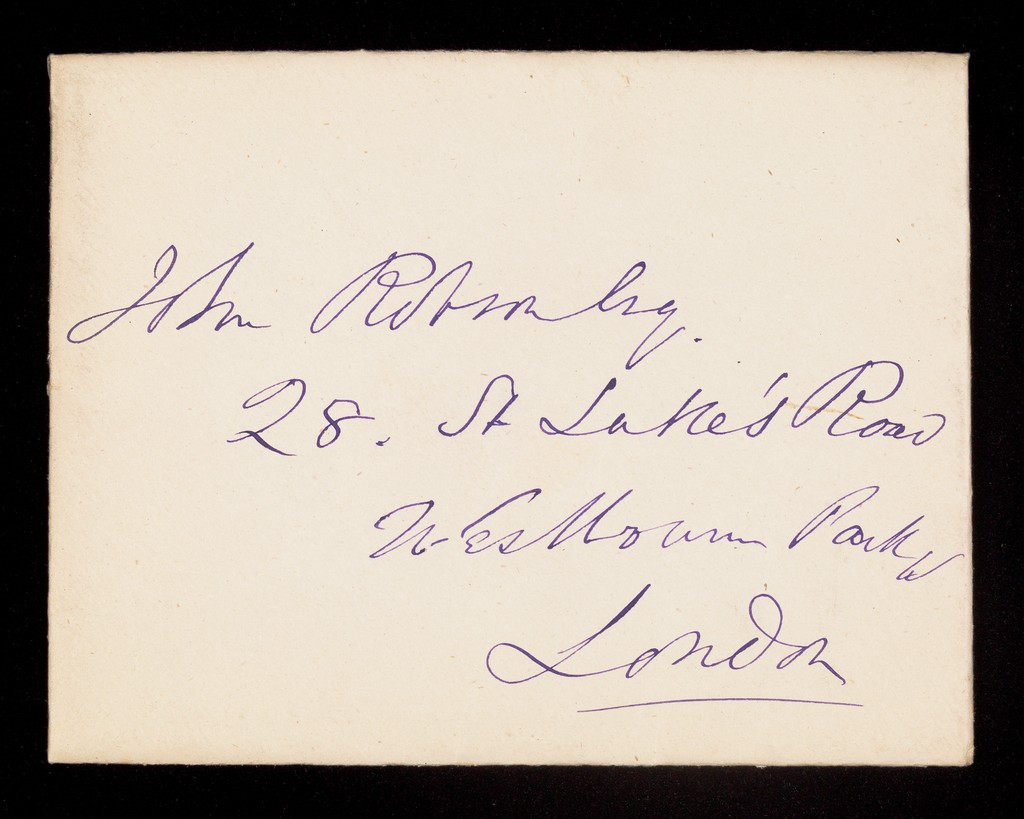 John Robson Esq.
28. St Luke's Road
Westbourn Park W
London